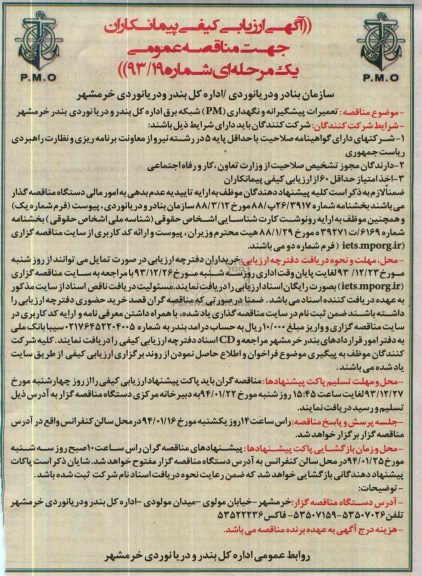 ((آگهی ارزیابی کیفی پیمانکاران
جهت مناقصه عمومی
یک مرحله‌ای شماره ۹۳/۱۹))
P.M.O
P.M.O
سازمان بنادر و دریانوردی /اداره کل بندر و دریانوردی خرمشهر
- موضوع مناقصه: تعمیرات پیشگیرانه و نگهداری (PM) شبکه برق اداره کل بندر و دریانوردی بندر خرمشهر
- شرایط شرکت کنندگان: شرکت کنندگان باید دارای شرایط ذیل باشند:
۱- شرکتهای دارای گواهینامه صلاحیت با حداقل پایه ۵ در رشته نیرو از معاونت برنامه ریزی و نظارت راهبردی
ریاست جمهوری
۲- دارندگان مجوز تشخیص صلاحیت از وزارت تعاون ، کار و رفاه اجتماعی
۳- اخذ امتیاز حداقل ۶۰ از ارزیابی کیفی پیمانکاران
ضمناً لازم به ذکر است کلیه پیشنهاد دهندگان موظف به ارایه تاییدیه عدم بدهی به امور مالی دستگاه مناقصه گذار
می باشند بخشنامه شماره ۲۶۳۹۱۷/پ۸۸ مورخ ۸۸/۳/۱۲ سازمان بنادر و دریانوردی ، پیوست (فرم شماره یک)
و همچنین موظف به ارایه رونوشت کارت شناسایی اشخاص حقوقی (شناسه ملی اشخاص حقوقی) بخشنامه
شماره ۶۱۶۹/ت ۳۹۲۷۱ ه مورخ ۸۸/۱/۲۹ هیت محترم وزیران ، پیوست و ارائه کد کاربری از سایت مناقصه گزاری
(iets.mporg.ir) ( فرم شماره دو) می باشند.
- محل، مهلت و نحوه دریافت دفترچه ارزیابی: خریداران دفترچه ارزیابی در صورت تمایل می توانند از روز شنبه
مورخ ۹۳/۱۲/۲۳ لغایت پایان وقت اداری روز سه شنبه مورخ ۹۳/۱۲/۲۶ با مراجعه به سایت مناقصه گزاری
(iets.mporg.ir) بصورت رایگان اسناد ارزیابی را دریافت نمایند. مسئولیت دریافت ناقص اسناد از سایت مذکور
به عهده دریافت کننده اسناد می باشد. ضمنا در صورتی که مناقصه گران قصد خرید حضوری دفترچه ارزیابی را
داشته باشند ضمن ثبت نام در سایت مناقصه گذاری یاد شده، با همراه داشتن معرفی نامه و ارایه کد کاربری در
سایت مناقصه گزاری و واریز مبلغ ۱۰/۰۰۰ ریال به حساب درآمد بندر به شماره ۰۲۱۷۶۴۵۲۲۰۴۰۰۵ سیبا بانک ملی
به دفتر امور قراردادهای بندر خرمشهر مراجعه و CD اسناد دفترچه ارزیابی کیفی را دریافت نمایند. کلیه شرکت
کنندگان موظف به پیگیری موضوع فراخوان و اطلاع حاصل نمودن از روند برگزاری ارزیابی کیفی از طریق سایت
یاد شده می باشند.
- محل و مهلت تسلیم پاکت پیشنهادها: مناقصه گران باید پاکت پیشنهاد ارزیابی کیفی را از روز چهارشنبه مورخ
۹۳/۱۲/۲۷ لغایت ساعت ۱۵:۴۵ روز شنبه مورخ ۹۴/۰۱/۲۲ به دبیرخانه مرکزی دستگاه مناقصه گزار به آدرس ذیل
تسلیم و رسید دریافت نمایند.
- جلسه پرسش و پاسخ مناقصه: راس ساعت ۱۴ روز یکشنبه مورخ ۹۴/۰۱/۱۶ در محل سالن کنفرانس واقع در آدرس
مناقصه گزار برگزار خواهد شد.
- محل و زمان بازگشایی پاکت پیشنهادها: پیشنهادهای مناقصه گران راس ساعت ۱۰ صبح روز سه شنبه
مورخ ۹۴/۰۱/۲۵ در محل سالن کنفرانس به آدرس دستگاه مناقصه گزار مفتوح خواهد شد. شایان ذکر است پاکات
پیشنهاد دهندگانی بازگشایی خواهد شد که ضمن رعایت نحوه دریافت اسناد نام شرکت ثبت شده باشد.
- توضیحات:
- آدرس دستگاه مناقصه گزار: خرمشهر -خیابان مولوی -میدان مولوی -اداره کل بندر و دریانوردی خرمشهر
تلفن ۵۳۵۰۷۰۲۶-۵۳۵۰۷۱۵۹ - فاکس ۵۳۵۲۲۲۳۶
- هزینه درج آگهی به عهده برنده مناقصه می باشد.
روابط عمومی اداره کل بندر و دریانوردی خرمشهر